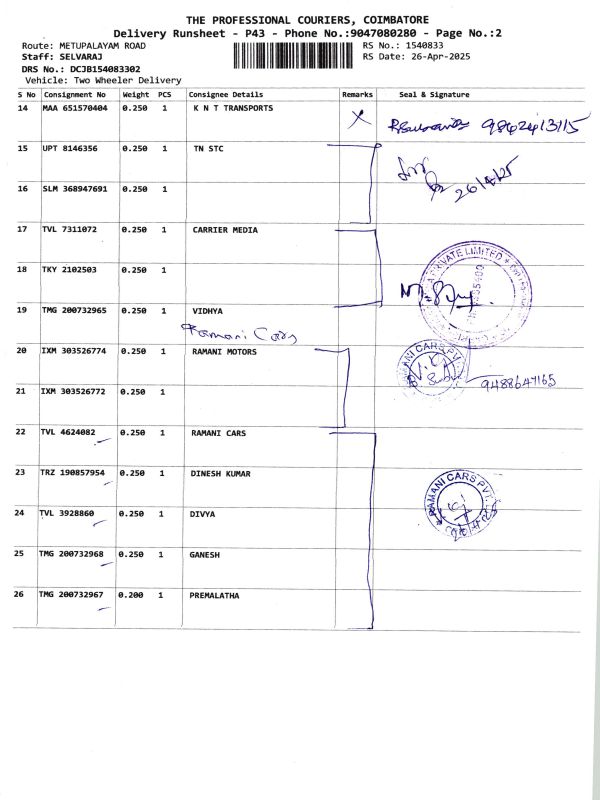 THE PROFESSIONAL COURIERS, COIMBATORE
Delivery Runsheet - P43 - Phone No.:9047080280 - Page No.:2
Route: METUPALAYAM ROAD RS No.: 1540833
Staff: SELVARAJ RS Date: 26-Apr-2025
DRS No.: DCJB154083302
Vehicle: Two Wheeler Delivery
S No Consignment No Weight PCS Consignee Details Remarks Seal & Signature
14 MAA 651570404 0.250 1 K N T TRANSPORTS
9862413115
15 UPT 8146356 0.250 1 TN STC
26/4/25
16 SLM 368947691 0.250 1
17 TVL 7311072 0.250 1 CARRIER MEDIA
PRIVATE LIMITED
18 TKY 2102503 0.250 1
19 TMG 200732965 0.250 1 VIDHYA
Ramani Cars
20 IXM 303526774 0.250 1 RAMANI MOTORS
RAMANI CARS PVT.
9488647165
21 IXM 303526772 0.250 1
22 TVL 4624082 0.250 1 RAMANI CARS
23 TRZ 190857954 0.250 1 DINESH KUMAR
RAMANI CARS PVT.
24 TVL 3928860 0.250 1 DIVYA
25 TMG 200732968 0.250 1 GANESH
26 TMG 200732967 0.200 1 PREMALATHA